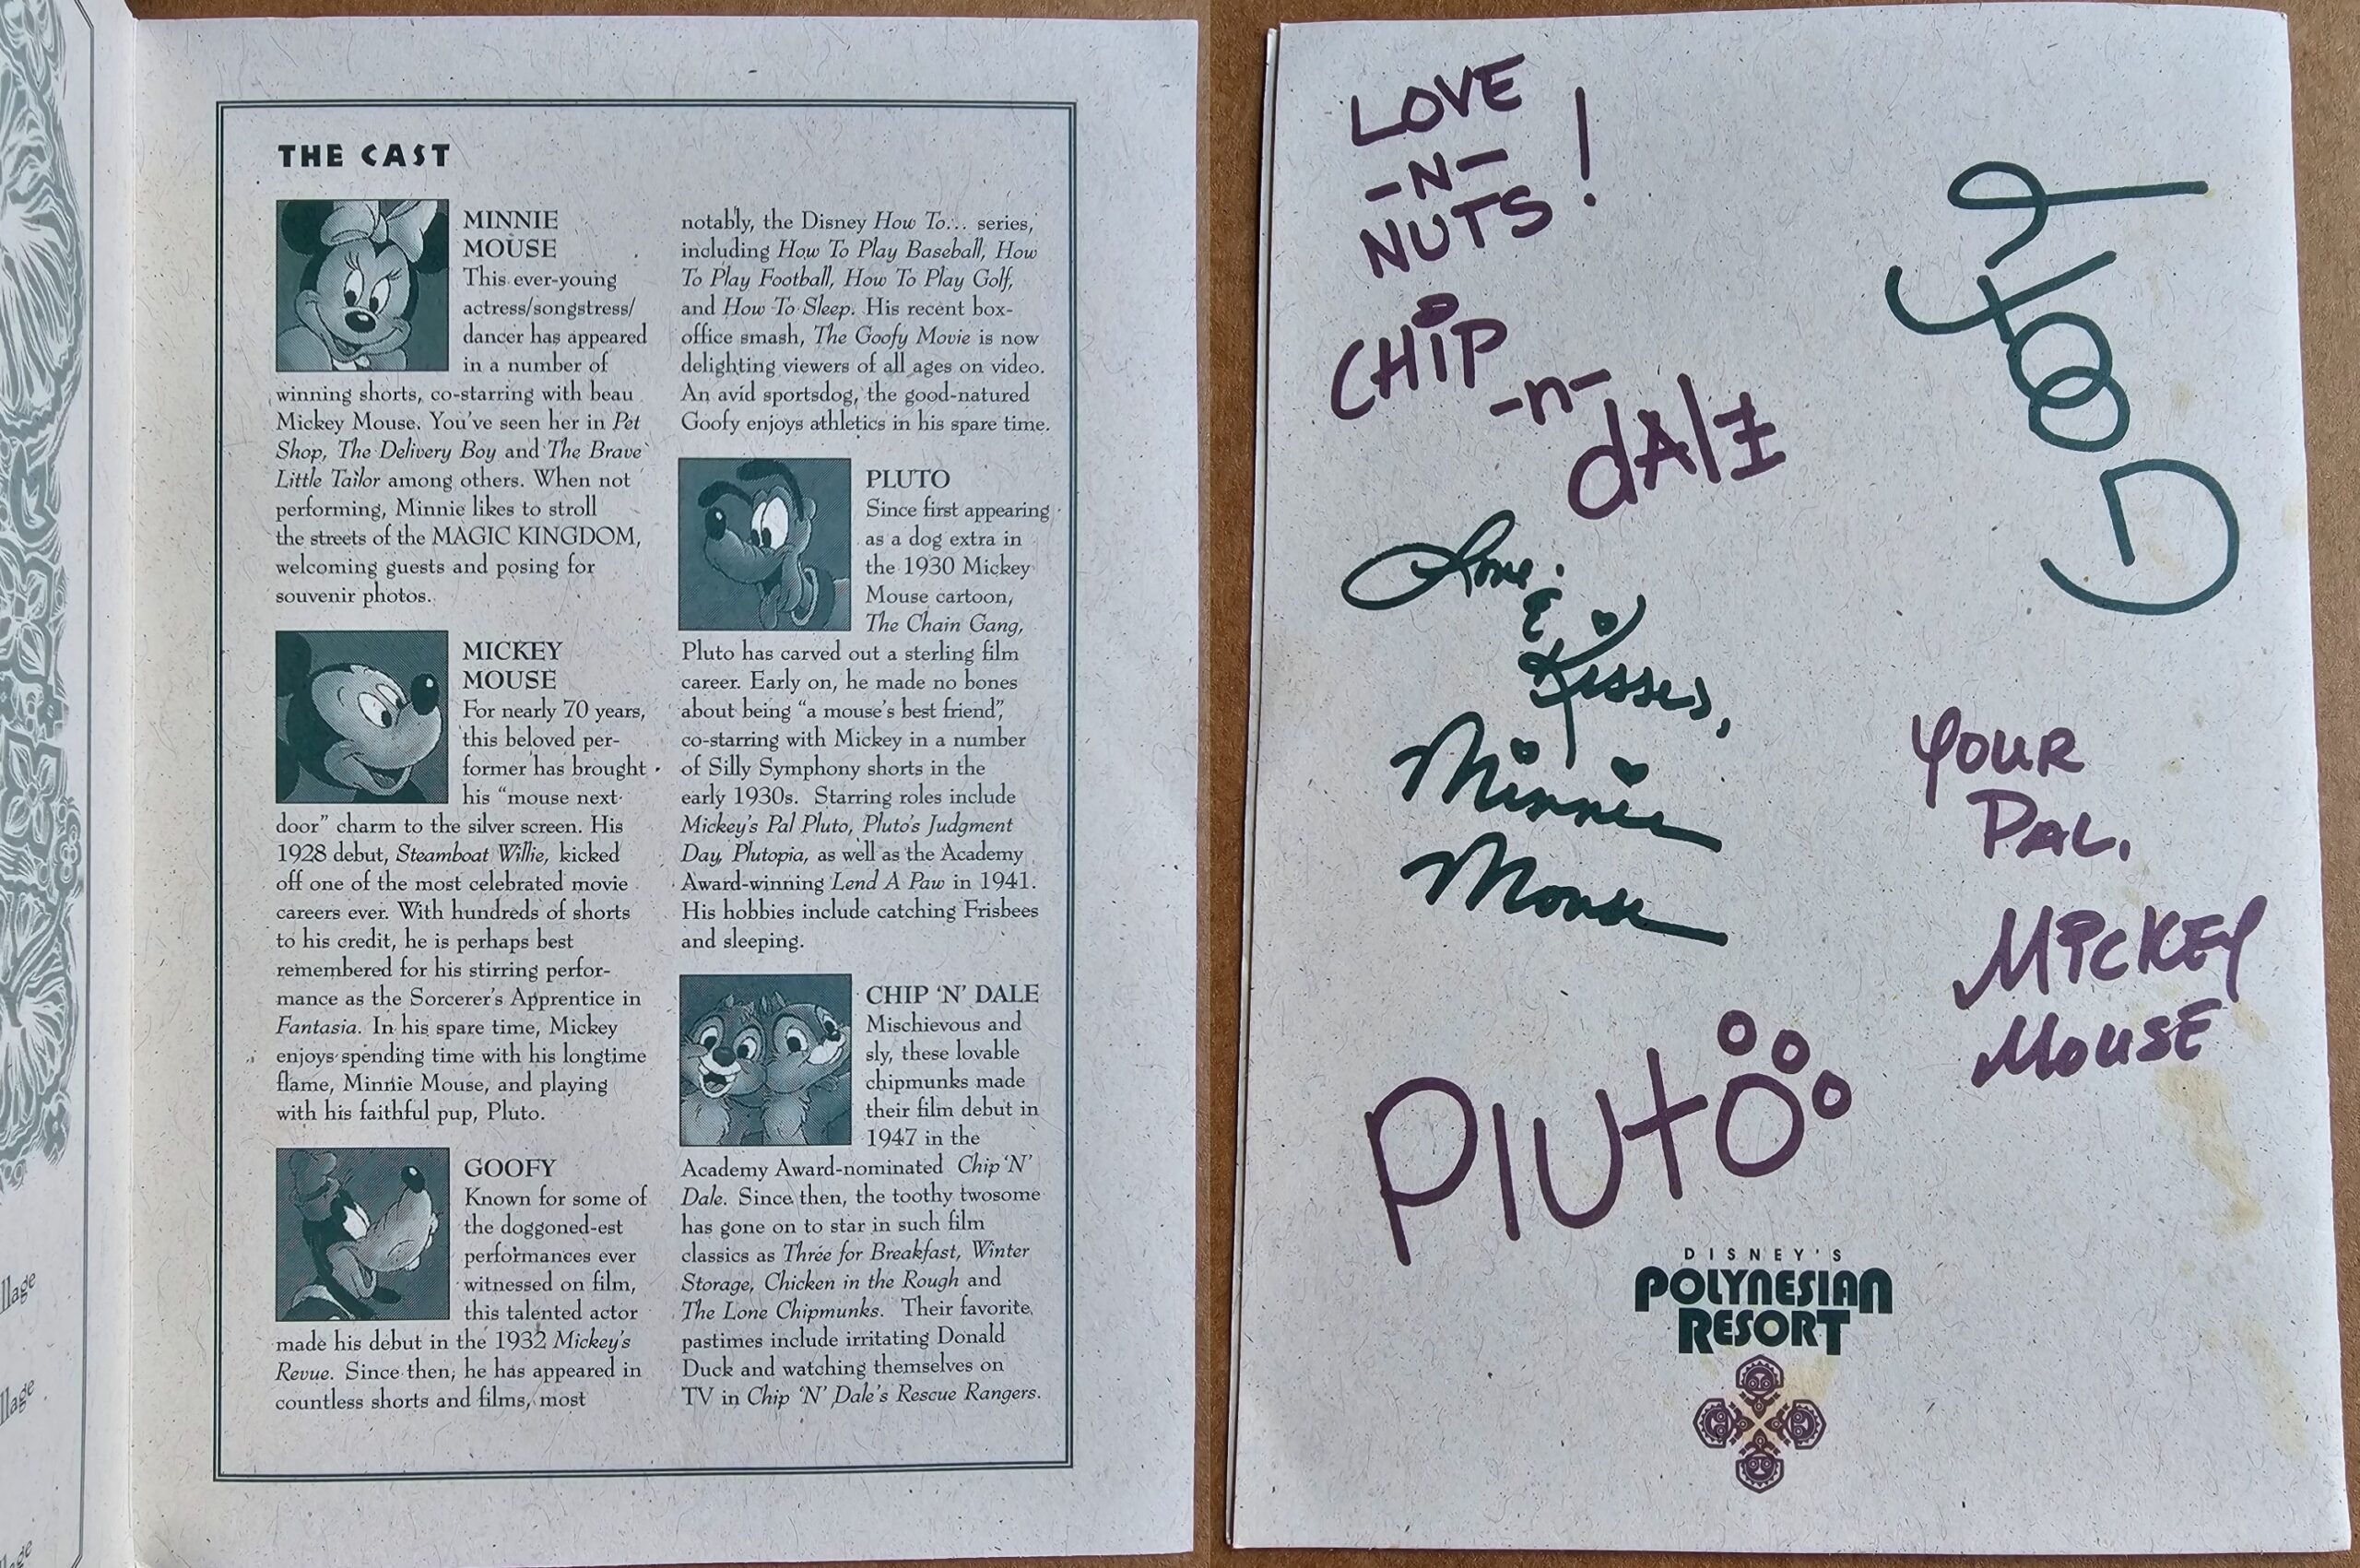 THE CAST
MINNIE
MOUSE
This ever-young
actress/songstress/
dancer has appeared
in a number of
winning shorts, co-starring with beau
Mickey Mouse. You've seen her in Pet
Shop, The Delivery Boy and The Brave
Little Tailor among others. When not
performing, Minnie likes to stroll
the streets of the MAGIC KINGDOM,
welcoming guests and posing for
souvenir photos.
MICKEY
MOUSE
For nearly 70 years,
this beloved per-
former has brought
his “mouse next
door” charm to the silver screen. His
1928 debut, Steamboat Willie, kicked
off one of the most celebrated movie
careers ever. With hundreds of shorts
to his credit, he is perhaps best
remembered for his stirring perfor-
mance as the Sorcerer's Apprentice in
Fantasia. In his spare time, Mickey
enjoys spending time with his longtime
flame, Minnie Mouse, and playing
with his faithful pup, Pluto.
GOOFY
Known for some of
the doggoned-est
performances ever
witnessed on film,
this talented actor
made his debut in the 1932 Mickey's
Revue. Since then, he has appeared in
countless shorts and films, most
notably, the Disney How To... series,
including How To Play Baseball, How
To Play Football, How To Play Golf,
and How To Sleep. His recent box-
office smash, The Goofy Movie is now
delighting viewers of all ages on video.
An avid sportsdog, the good-natured
Goofy enjoys athletics in his spare time.
PLUTO
Since first appearing
as a dog extra in
the 1930 Mickey
Mouse cartoon,
The Chain Gang,
Pluto has carved out a sterling film
career. Early on, he made no bones
about being “a mouse's best friend”,
co-starring with Mickey in a number
of Silly Symphony shorts in the
early 1930s. Starring roles include
Mickey's Pal Pluto, Pluto's Judgment
Day, Plutopia, as well as the Academy
Award-winning Lend A Paw in 1941.
His hobbies include catching Frisbees
and sleeping.
CHIP 'N' DALE
Mischievous and
sly, these lovable
chipmunks made
their film debut in
1947 in the
Academy Award-nominated Chip 'N'
Dale. Since then, the toothy twosome
has gone on to star in such film
classics as Three for Breakfast, Winter
Storage, Chicken in the Rough and
The Lone Chipmunks. Their favorite
pastimes include irritating Donald
Duck and watching themselves on
TV in Chip 'N' Dale's Rescue Rangers.
LOVE
-N-
NUTS!
CHiP
-n-
dAlE
Goofy
Love
&
Kisses,
Minnie
Mouse
YOUR
PAL,
MiCKEY
MOUSE
Pluto
DISNEY'S
POLYNESIAN
RESORT